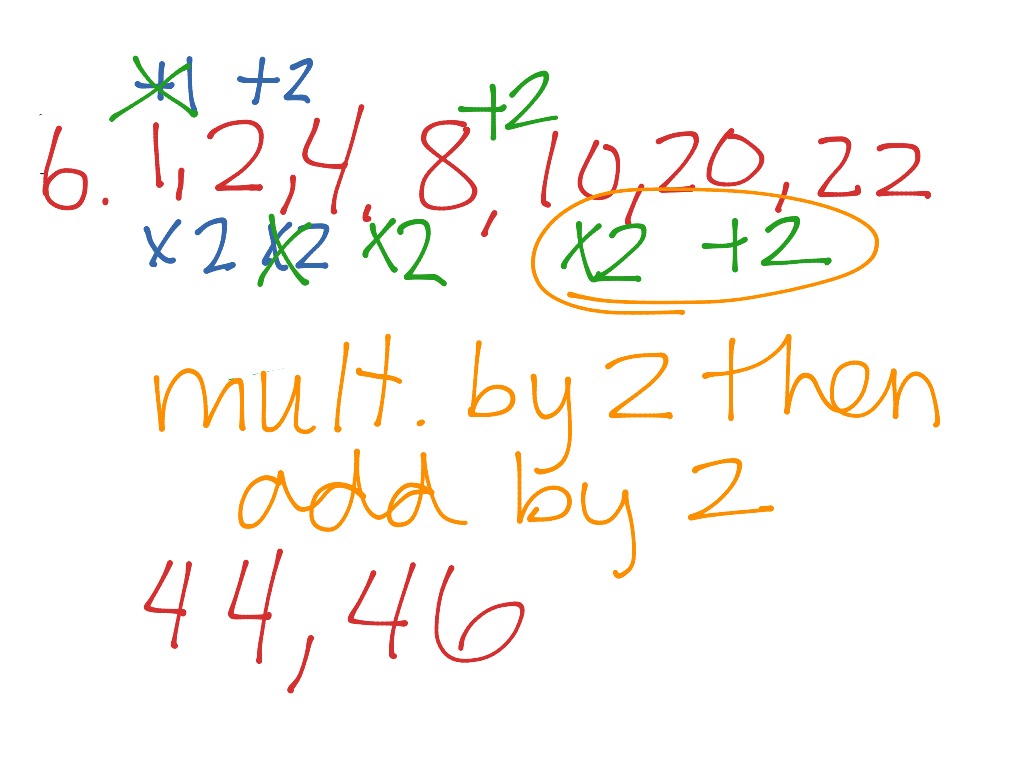 +1 +2 +2
6. 1, 2, 4, 8, 10, 20, 22
x2 x2 x2 x2 +2
mult. by 2 then
add by 2
44, 46